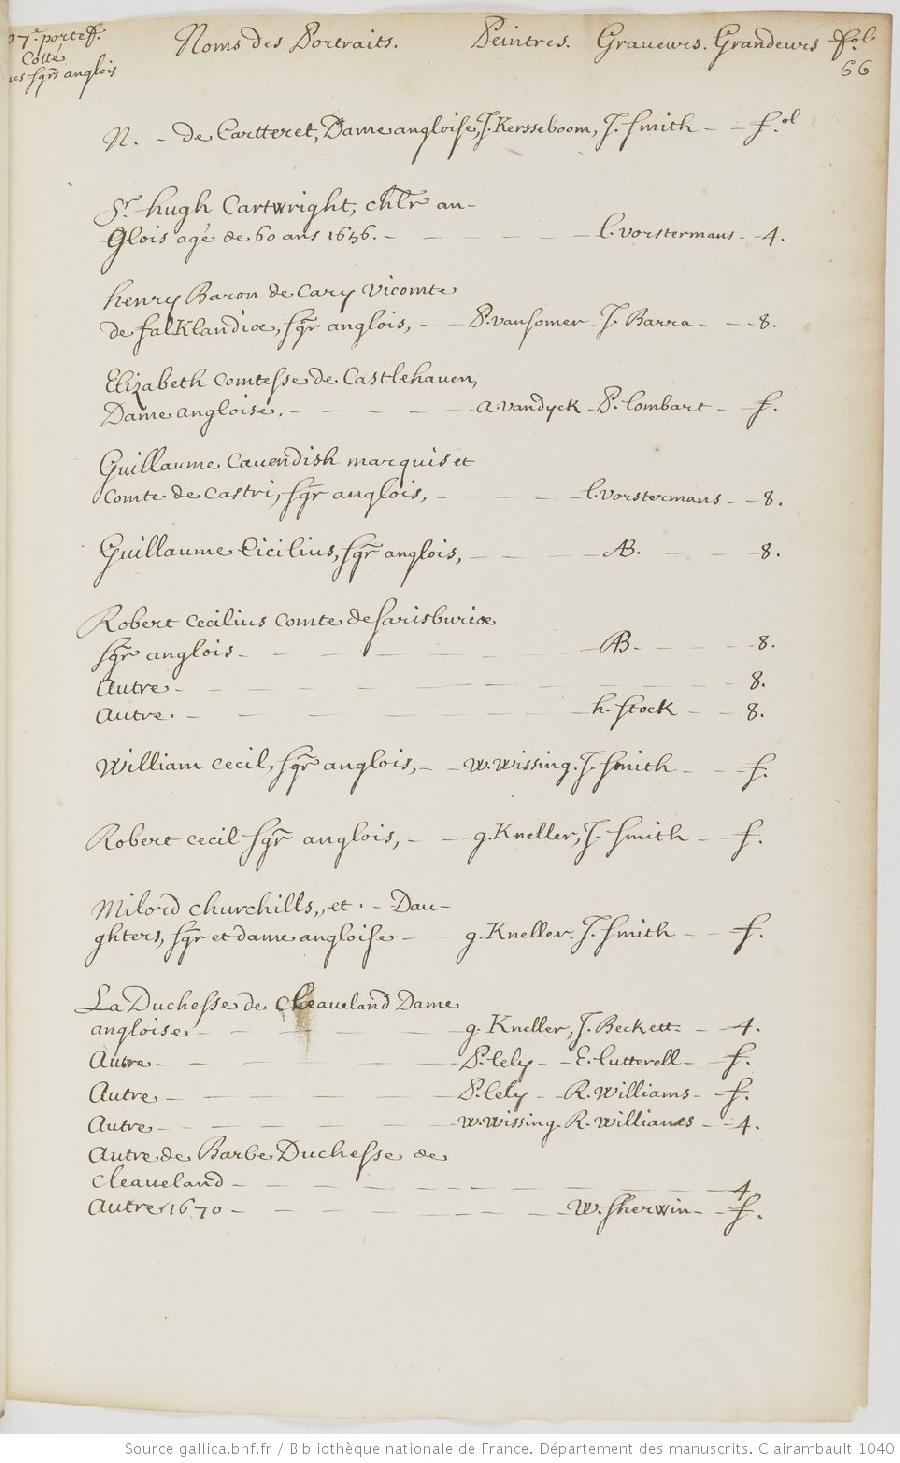 07.e porteff. Noms des Portraits. Peintres. Graueurs. Grandeurs fol.
Cotté 66
sgrs anglois
N. - de Cartteret, Dame angloise, J. Kersseboom, J. Smith - - fol
Sr. hugh Cartwright, chlr an-
Glois agé de 60 ans 1656. - - - - - l. vorstermans - - 4.
henry Baron de Cary Vicomte
de falKlandiæ, sgr anglois, - - P. vansomer J. Barra - - 8.
Elizabeth comtesse de Castlehauen,
Dame angloise. - - - - a. vandyck P. lombart - f.
Guillaume Cauendish marquis et
comte de castri, sgr anglois, - - - l. vorstermans - - 8.
Guillaume Cicilius, sgr anglois, - - - AB. - - - 8.
Robert cecilius comte de sarisburiæ
sgr anglois - - - - - - - AB - - - 8.
Autre - - - - - - - - - - - 8.
Autre. - - - - - - h. stock - - 8.
William cecil, sgr anglois, - - w. wissing. J. Smith - - f.
Robert cecil sgr anglois, - - g. Kneller, J. Smith - f.
Milord churchills, et. - Dau-
ghters, sgr et dame angloise - g. Kneller. J. Smith - - f.
La Duchesse de Cleaueland Dame
angloise. - - - - - g. Kneller, J. Beckett - 4.
Autre - - - - - P. lely - E. lutterell - f.
Autre - - - - - P. lely - R. Williams - f.
Autre - - - - - w. wissing R. Williams - - 4.
Autre de Barbe Duchesse de
Cleaueland - - - - - - - - 4
Autre 1670 - - - - - - w. sherwin - - f.
Source gallica.bnf.fr / Bibliothèque nationale de France. Département des manuscrits. Clairambault 1040